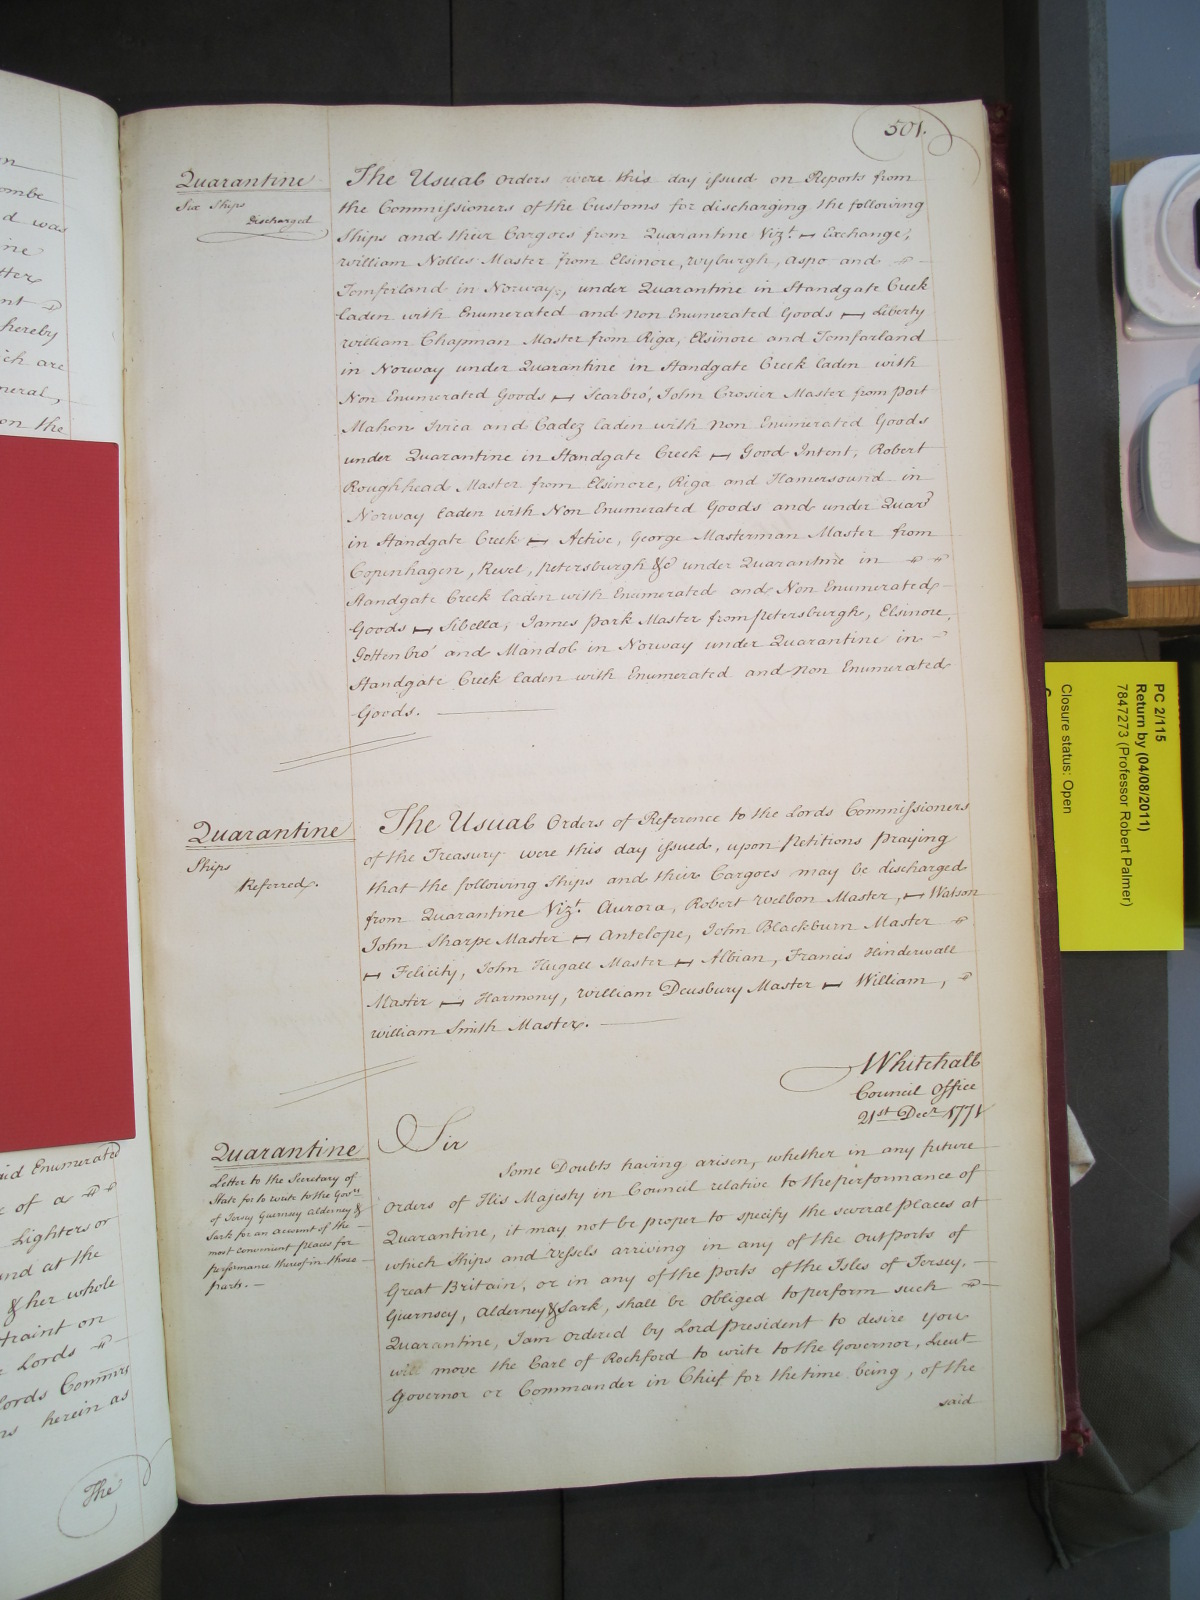 501.
Quarantine
Six Ships
Discharged
The Usual Orders were this day issued on Reports from
the Commissioners of the Customs for discharging the following
Ships and their Cargoes from Quarantine Vizt. Exchange,
William Nolles Master from Elsinore, Wyburgh, Aspo and
Tomferland in Norway, under Quarantine in Standgate Creek
Laden with Enumerated and Non Enumerated Goods Liberty
William Chapman Master from Riga, Elsinore and Tomfarland
in Norway under Quarantine in Standgate Creek Laden with
Non Enumerated Goods Scarbro', John Crosier Master from Port
Mahon Ivica and Cadez Laden with Non Enumerated Goods
under Quarantine in Standgate Creek Good Intent, Robert
Roughhead Master from Elsinore, Riga and Hamersound in
Norway Laden with Non Enumerated Goods and under Quar
in Standgate Creek Active, George Masterman Master from
Copenhagen, Revel, Petersburgh &c under Quarantine in
Standgate Creek Laden with Enumerated and Non Enumerated
Goods Sibella, James Park Master from Petersburgh, Elsinore,
Gottenbro' and Mandol in Norway under Quarantine in
Standgate Creek Laden with Enumerated and Non Enumerated
Goods.
Quarantine
Ships
Referred.
The Usual Orders of Reference to the Lords Commissioners
of the Treasury were this day issued, upon Petitions Praying
that the following Ships and their Cargoes may be discharged
from Quarantine Vizt. Aurora, Robert Welbon Master, Watson
John Sharpe Master Antelope, John Blackburn Master
Felicity, John Hugall Master Albian, Francis Hinderwall
Master Harmony, William Deusbury Master William,
William Smith Master.
Whitehall
Council Office
21st Decr. 1771
Quarantine
Letter to the Secretary of
State for to write to the Govrs
of Jersey Guernsey Alderney &
Sark for an account of the
most convenient Places for
performance thereof in those
parts.
Sir
Some Doubts having arisen, whether in any future
Orders of His Majesty in Council relative to the performance of
Quarantine, it may not be proper to specify the several Places at
which Ships and Vessels arriving in any of the outports of
Great Britain, or in any of the Ports of the Isles of Jersey,
Guernsey, Alderney & Sark, shall be Obliged to perform such
Quarantine, I am Ordered by Lord President to desire you
will move the Earl of Rochford to write to the Governor, Lieut
Governor or Commander in Chief for the time being, of the
said
ombe
d was
ine
tter
nt
hereby
ich are
neral,
on the
aid Enumerated
of a
Lighters or
and at the
& her whole
traint on
Lords
Lords Commrs
herein as
The
PC 2/115
Return by (04/08/2011)
7847273 (Professor Robert Palmer)
Closure status: Open